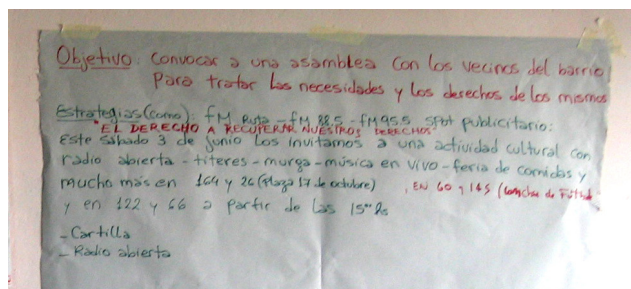 Objetivo: Convocar a una asamblea con los vecinos del barrio
Para tratar las necesidades y los desechos de los mismos
Estrategias (como): fM Ruta - fM 88.5 - fM 95.5 spot publicitario:
"EL DERECHO A RECUPERAR NUESTROS DERECHOS"
Este sábado 3 de junio los invitamos a una actividad cultural con
radio abierta - títeres - murga - música en vivo - feria de comidas y
mucho más en 164 y 26 (Plaza 17 de octubre) , EN 60 y 145 (cancha de Fútbol
y en 122 y 66 a partir de las 15 hs
- Cartilla
- Radio abierta